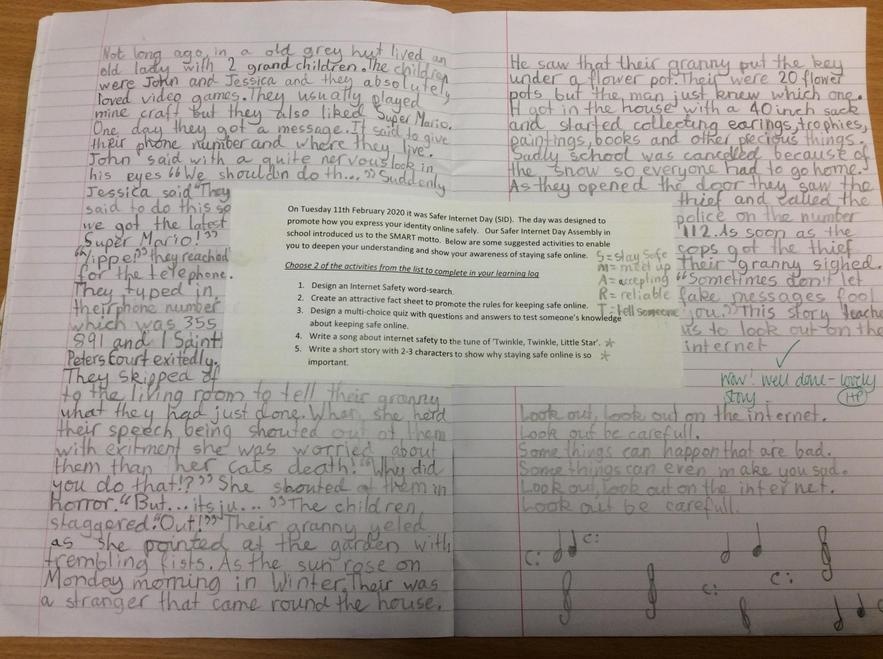 Not long ago, in a old grey hut lived an
old lady with 2 grand children. The children
were John and Jessica and they absolutely
loved video games. They usually played
mine craft but they also liked Super Mario.
One day they got a message. It said to give
their phone number and where they live.
John said with a quite nervous look in
his eyes "We shouldin do th..." Suddenly
Jessica said "They
said to do this so
we got the latest
Super Mario!"
"Yippee" they reached
for the telephone.
They typed in
their phone number
which was 355
891 and 1 Saint
Peters Court exitedly.
They skipped of
to the living room to tell their granny
what they had just done. When she herd
their speech being shouted out of them
with exitment she was worried about
them than her cats death! "Why did
you do that!?" She shouted at them in
horror. "But... its ju..." The children
staggered. "Out!" Their granny yeled
as she pointed at the garden with
trembling fists. As the sun rose on
Monday morning in Winter. Their was
a stranger that came round the house.
On Tuesday 11th February 2020 it was Safer Internet Day (SID). The day was designed to
promote how you express your identity online safely. Our Safer Internet Day Assembly in
school introduced us to the SMART motto. Below are some suggested activities to enable
you to deepen your understanding and show your awareness of staying safe online.
Choose 2 of the activities from the list to complete in your learning log
1. Design an Internet Safety word-search.
2. Create an attractive fact sheet to promote the rules for keeping safe online.
3. Design a multi-choice quiz with questions and answers to test someone's knowledge
about keeping safe online.
4. Write a song about internet safety to the tune of 'Twinkle, Twinkle, Little Star'.
5. Write a short story with 2-3 characters to show why staying safe online is so
important.
S=stay safe
M=meet up
A=accepting
R=reliable
T=tell someone
He saw that their granny put the key
under a flower pot. Their were 20 flower
pots but the man just knew which one.
H got in the house with a 40 inch sack
and started collecting earings, trophies,
paintings, books and other precious things.
Sadly school was cancelled because of
the snow so everyone had to go home.
As they opened the door they saw the
thief and called the
police on the number
112. As soon as the
cops got the thief
Their granny sighed.
"Sometimes don't let
fake messages fool
you." This story teache
us to look out on the
internet
Wow! Well done - lovely
story.
HP
Look out, look out on the internet.
Look out be carefull.
Some things can happon that are bad.
Some things can even make you sad.
Look out, look out on the internet.
Look out be carefull.